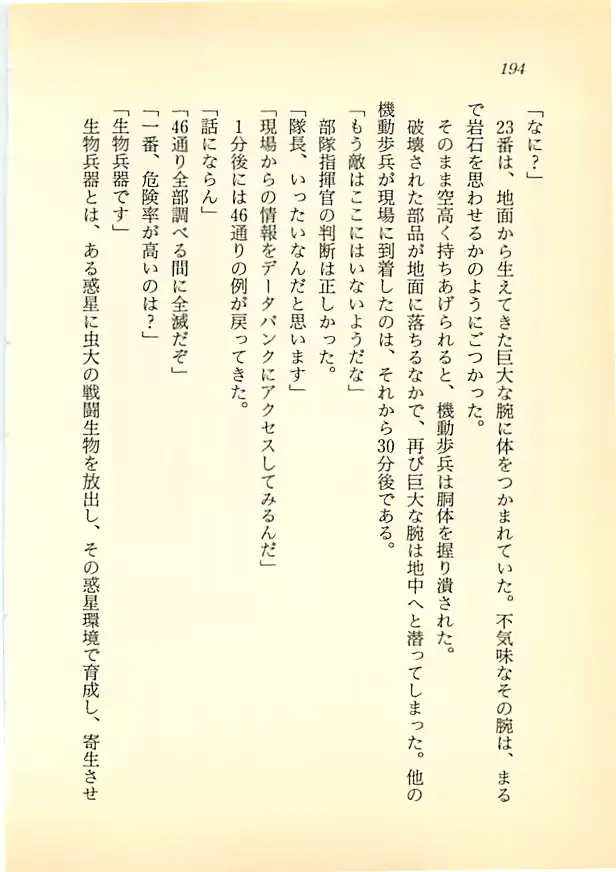 194
「なに?」
23番は、地面から生えてきた巨大な腕に体をつかまれていた。不気味なその腕は、まる
で岩石を思わせるかのようにごつかった。
そのまま空高く持ちあげられると、機動歩兵は胴体を握り潰された。
破壊された部品が地面に落ちるなかで、再び巨大な腕は地中へと潜ってしまった。他の
機動歩兵が現場に到着したのは、それから30分後である。
「もう敵はここにはいないようだな」
部隊指揮官の判断は正しかった。
「隊長、いったいなんだと思います」
「現場からの情報をデータバンクにアクセスしてみるんだ」
1分後には46通りの例が戻ってきた。
「話にならん」
「46通り全部調べる間に全滅だぞ」
「一番、危険率が高いのは?」
「生物兵器です」
生物兵器とは、ある惑星に虫大の戦闘生物を放出し、その惑星環境で育成し、寄生させ